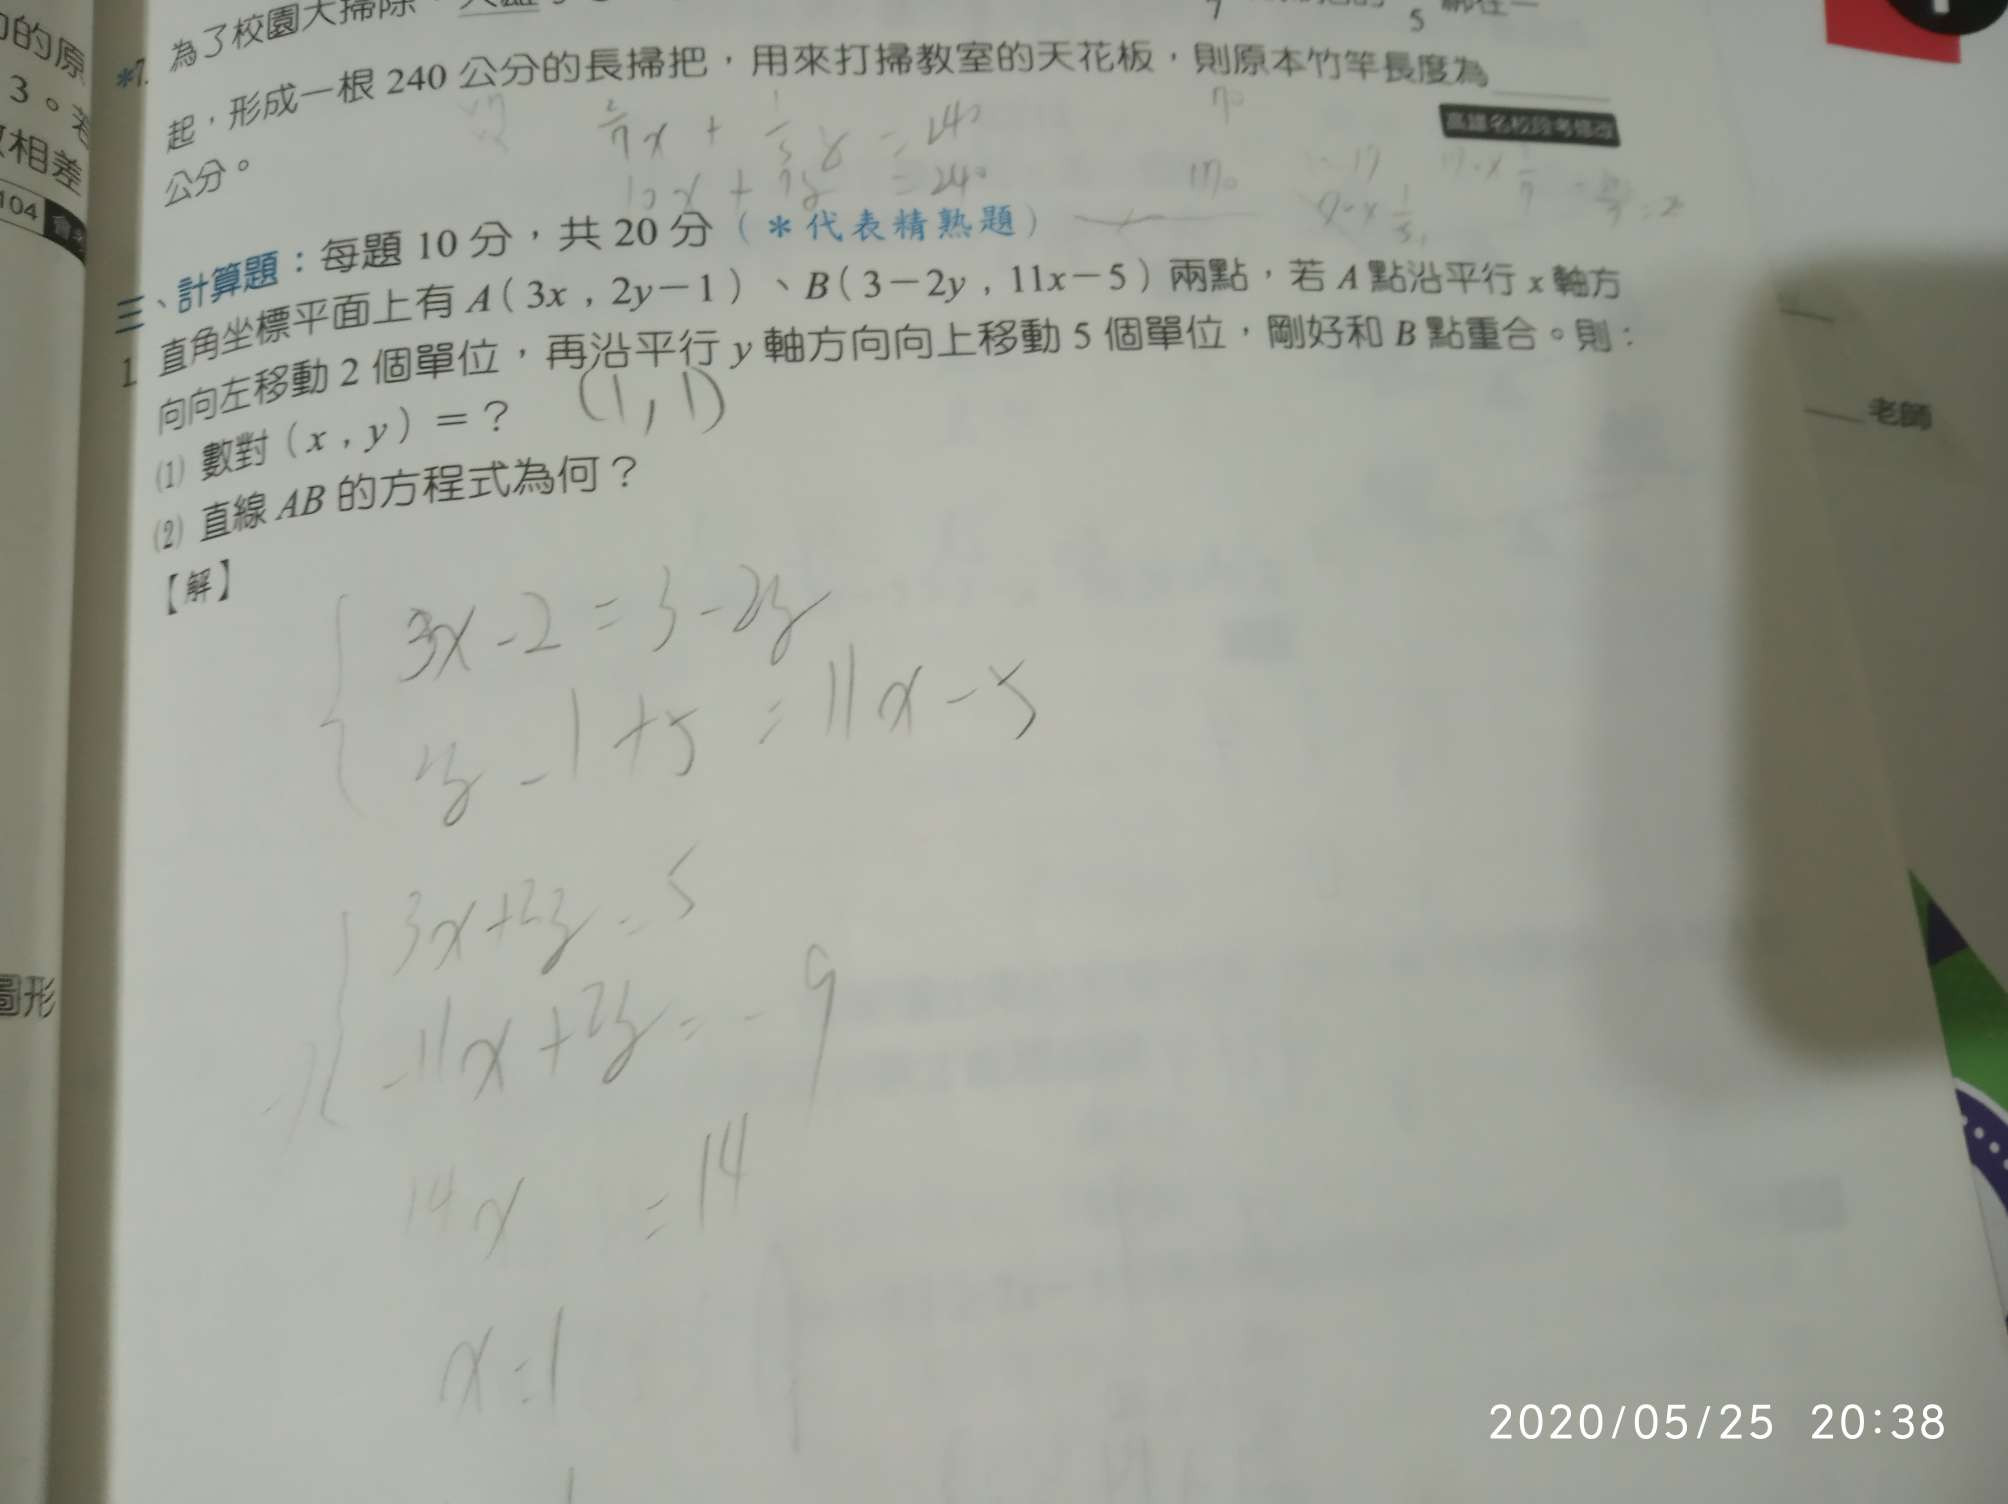 的原
3。若
相差
104
圖形
*7. 為了校園大掃除,
5
起,形成一根 240 公分的長掃把,用來打掃教室的天花板,則原本竹竿長度為
公分。
高雄名校段考修改
2/7 x + 1/5 y = 240
10x + 7y = 240
70
170
三、計算題:每題 10 分,共 20 分(*代表精熟題)
1 直角坐標平面上有 A(3x , 2y-1)、B(3-2y , 11x-5)兩點,若 A 點沿平行 x 軸方
向向左移動 2 個單位,再沿平行 y 軸方向向上移動 5 個單位,剛好和 B 點重合。則:
(1) 數對(x , y)=? (1,1)
(2) 直線 AB 的方程式為何?
【解】
3x-2=3-2y
2y-1+5=11x-5
3x+2y=5
-11x+2y=-9
14x=14
x=1
老師
2020/05/25 20:38